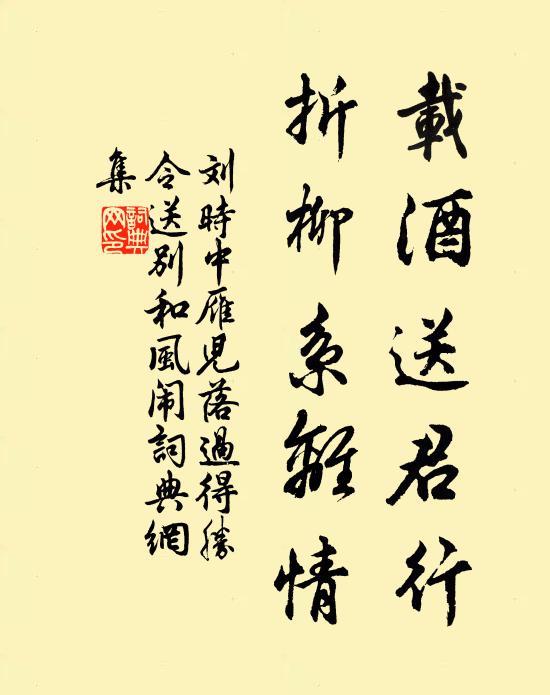 載酒送君行
折柳系離情
刘時中雁兒落過得勝
令送别和風闹詞典網
集
詞典
网印